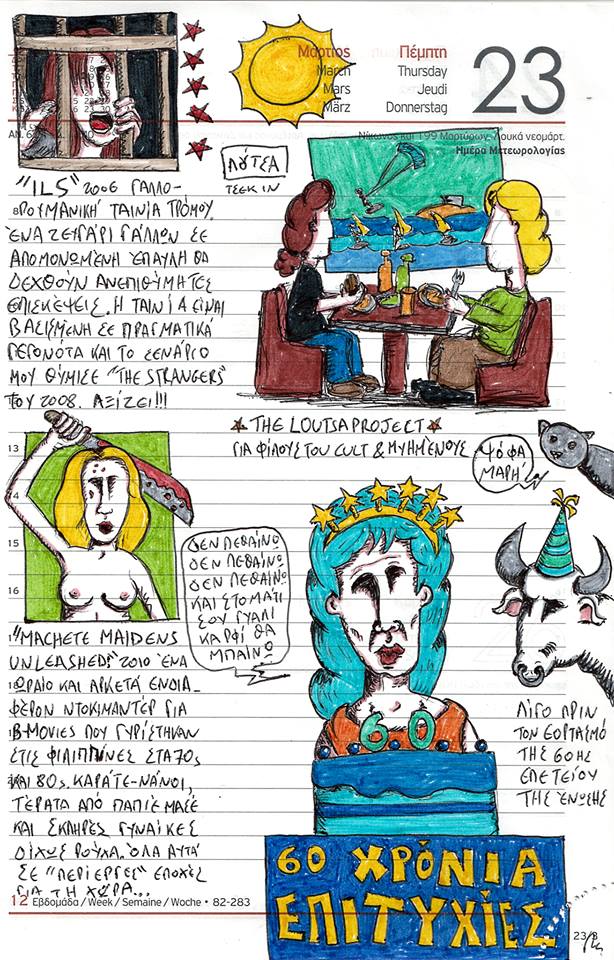 Μάρτιος Πέμπτη 23
March Thursday
Mars Jeudi
März Donnerstag
Νίκωνος και 199 Μαρτύρων, Λουκά νεομάρτ.
Ημέρα Μετεωρολογίας
ΛΟΥΤΣΑ
ΤΣΕΚ ΙΝ
"ILS" 2006 ΓΑΛΛΟ-
ΡΟΥΜΑΝΙΚΗ ΤΑΙΝΙΑ ΤΡΟΜΟΥ.
ΈΝΑ ΖΕΥΓΑΡΙ ΓΑΛΛΩΝ ΣΕ
ΑΠΟΜΟΝΩΜΕΝΗ ΈΠΑΥΛΗ ΘΑ
ΔΕΧΘΟΥΝ ΑΝΕΠΙΘΥΜΗΤΕΣ
ΕΠΙΣΚΕΨΕΙΣ. Η ΤΑΙΝΙΑ ΕΙΝΑΙ
ΒΑΣΙΣΜΕΝΗ ΣΕ ΠΡΑΓΜΑΤΙΚΑ
ΓΕΓΟΝΟΤΑ ΚΑΙ ΤΟ ΣΕΝΑΡΙΟ
ΜΟΥ ΘΥΜΙΣΕ "THE STRANGERS"
ΤΟΥ 2008. ΑΞΙΖΕΙ!!!
THE LOUTSA PROJECT
ΓΙΑ ΦΙΛΟΥΣ ΤΟΥ CULT & ΜΥΗΜΕΝΟΥΣ
ΨΌΦΑ
ΜΑΡΗ
13
14
15
16
ΔΕΝ ΠΕΘΑΙΝΩ
ΔΕΝ ΠΕΘΑΙΝΩ
ΔΕΝ ΠΕΘΑΙΝΩ
ΚΑΙ ΣΤΟ ΜΑΤΙ
ΣΟΥ ΓΥΑΛΙ
ΚΑΡΦΙ ΘΑ
ΜΠΑΙΝΩ
"MACHETE MAIDENS
UNLEASHED!" 2010 ΈΝΑ
ΩΡΑΙΟ ΚΑΙ ΑΡΚΕΤΑ ΕΝΔΙΑ-
ΦΕΡΟΝ ΝΤΟΚΙΜΑΝΤΕΡ ΓΙΑ
B-MOVIES ΠΟΥ ΓΥΡΙΣΤΗΚΑΝ
ΣΤΙΣ ΦΙΛΙΠΠΙΝΕΣ ΣΤΑ 70s
ΚΑΙ 80s. ΚΑΡΑΤΕ-ΝΑΝΟΙ,
ΤΕΡΑΤΑ ΑΠΟ ΠΑΠΙΕ ΜΑΣΕ
ΚΑΙ ΣΚΛΗΡΕΣ ΓΥΝΑΙΚΕΣ
ΔΙΧΩΣ ΡΟΥΧΑ. ΌΛΑ ΑΥΤΑ
ΣΕ "ΠΕΡΙΕΡΓΕΣ" ΕΠΟΧΕΣ
ΓΙΑ ΤΗ ΧΩΡΑ...
60
ΛΙΓΟ ΠΡΙΝ
ΤΟΝ ΕΟΡΤΑΣΜΟ
ΤΗΣ 60ΗΣ
ΕΠΕΤΕΙΟΥ
ΤΗΣ ΈΝΩΣΗΣ
60 ΧΡΌΝΙΑ
ΕΠΙΤΥΧΊΕΣ
12 Εβδομάδα / Week / Semaine / Woche • 82-283
23/3